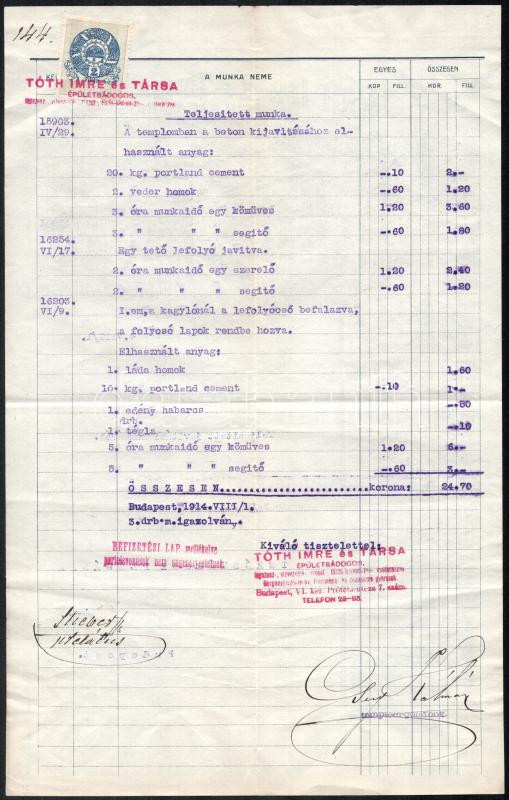 144.
TÓTH IMRE és TÁRSA
ÉPÜLETBÁDOGOS,
A MUNKA NEME
EGYES ÖSSZESEN
KOR FILL. KOR. FILL.
Teljesitett munka.
15903. IV/29. A templomban a beton kijavitásához el-
használt anyag:
20. kg. portland cement -.10 2.-
2. veder homok -.60 1.20
3. óra munkaidő egy kőműves 1.20 3.60
3. " " " segitő -.60 1.80
16254. VI/17. Egy tető lefolyó javitva.
2. óra munkaidő egy szerelő 1.20 2.40
2. " " " segitő -.60 1.20
16203. VI/9. I.em,a kagylónál a lefolyócső befalazva,
a folyosó lapok rendbe hozva.
Elhasznált anyag:
1. láda homok 1.60
10. kg. portland cement -.10 1.-
1. edény habarcs -.80
1. drb. tégla -.10
5. óra munkaidő egy kőműves 1.20 6.-
5. " " " segitő -.60 3.-
ÖSSZESEN korona: 24.70
Budapest,1914.VIII/1.
3.drb.m.igazolván,.
Kiváló tisztelettel:
BEFIZETÉSI LAP mellékelve
TÓTH IMRE és TÁRSA
ÉPÜLETBÁDOGOS,
Budapest, VI. ker. Próféta-utcza 7. szám.
TELEFON 29-93.